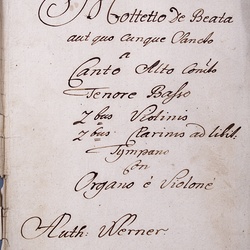 Mottetto de Beata
aut quo cunque Sancto
a
Canto Alto Conc:to
Tenore Basso
2bus Violinis
2bus Clarinis ad libit.
Tympano
Con
Organo è Violone
Auth: Werner